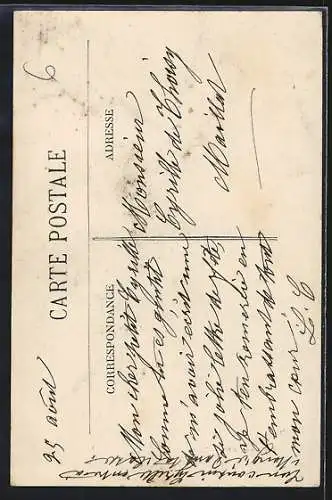 25 août
CARTE POSTALE
6
CORRESPONDANCE
ADRESSE
Mon cher petit Cyrille
Comme tu es gentil
de m'avoir écrit une
si jolie lettre de fête
Je t'en remercie en
t'embrassant de tout
mon cœur
Monsieur
Cyrille de Thoisy
Maillot